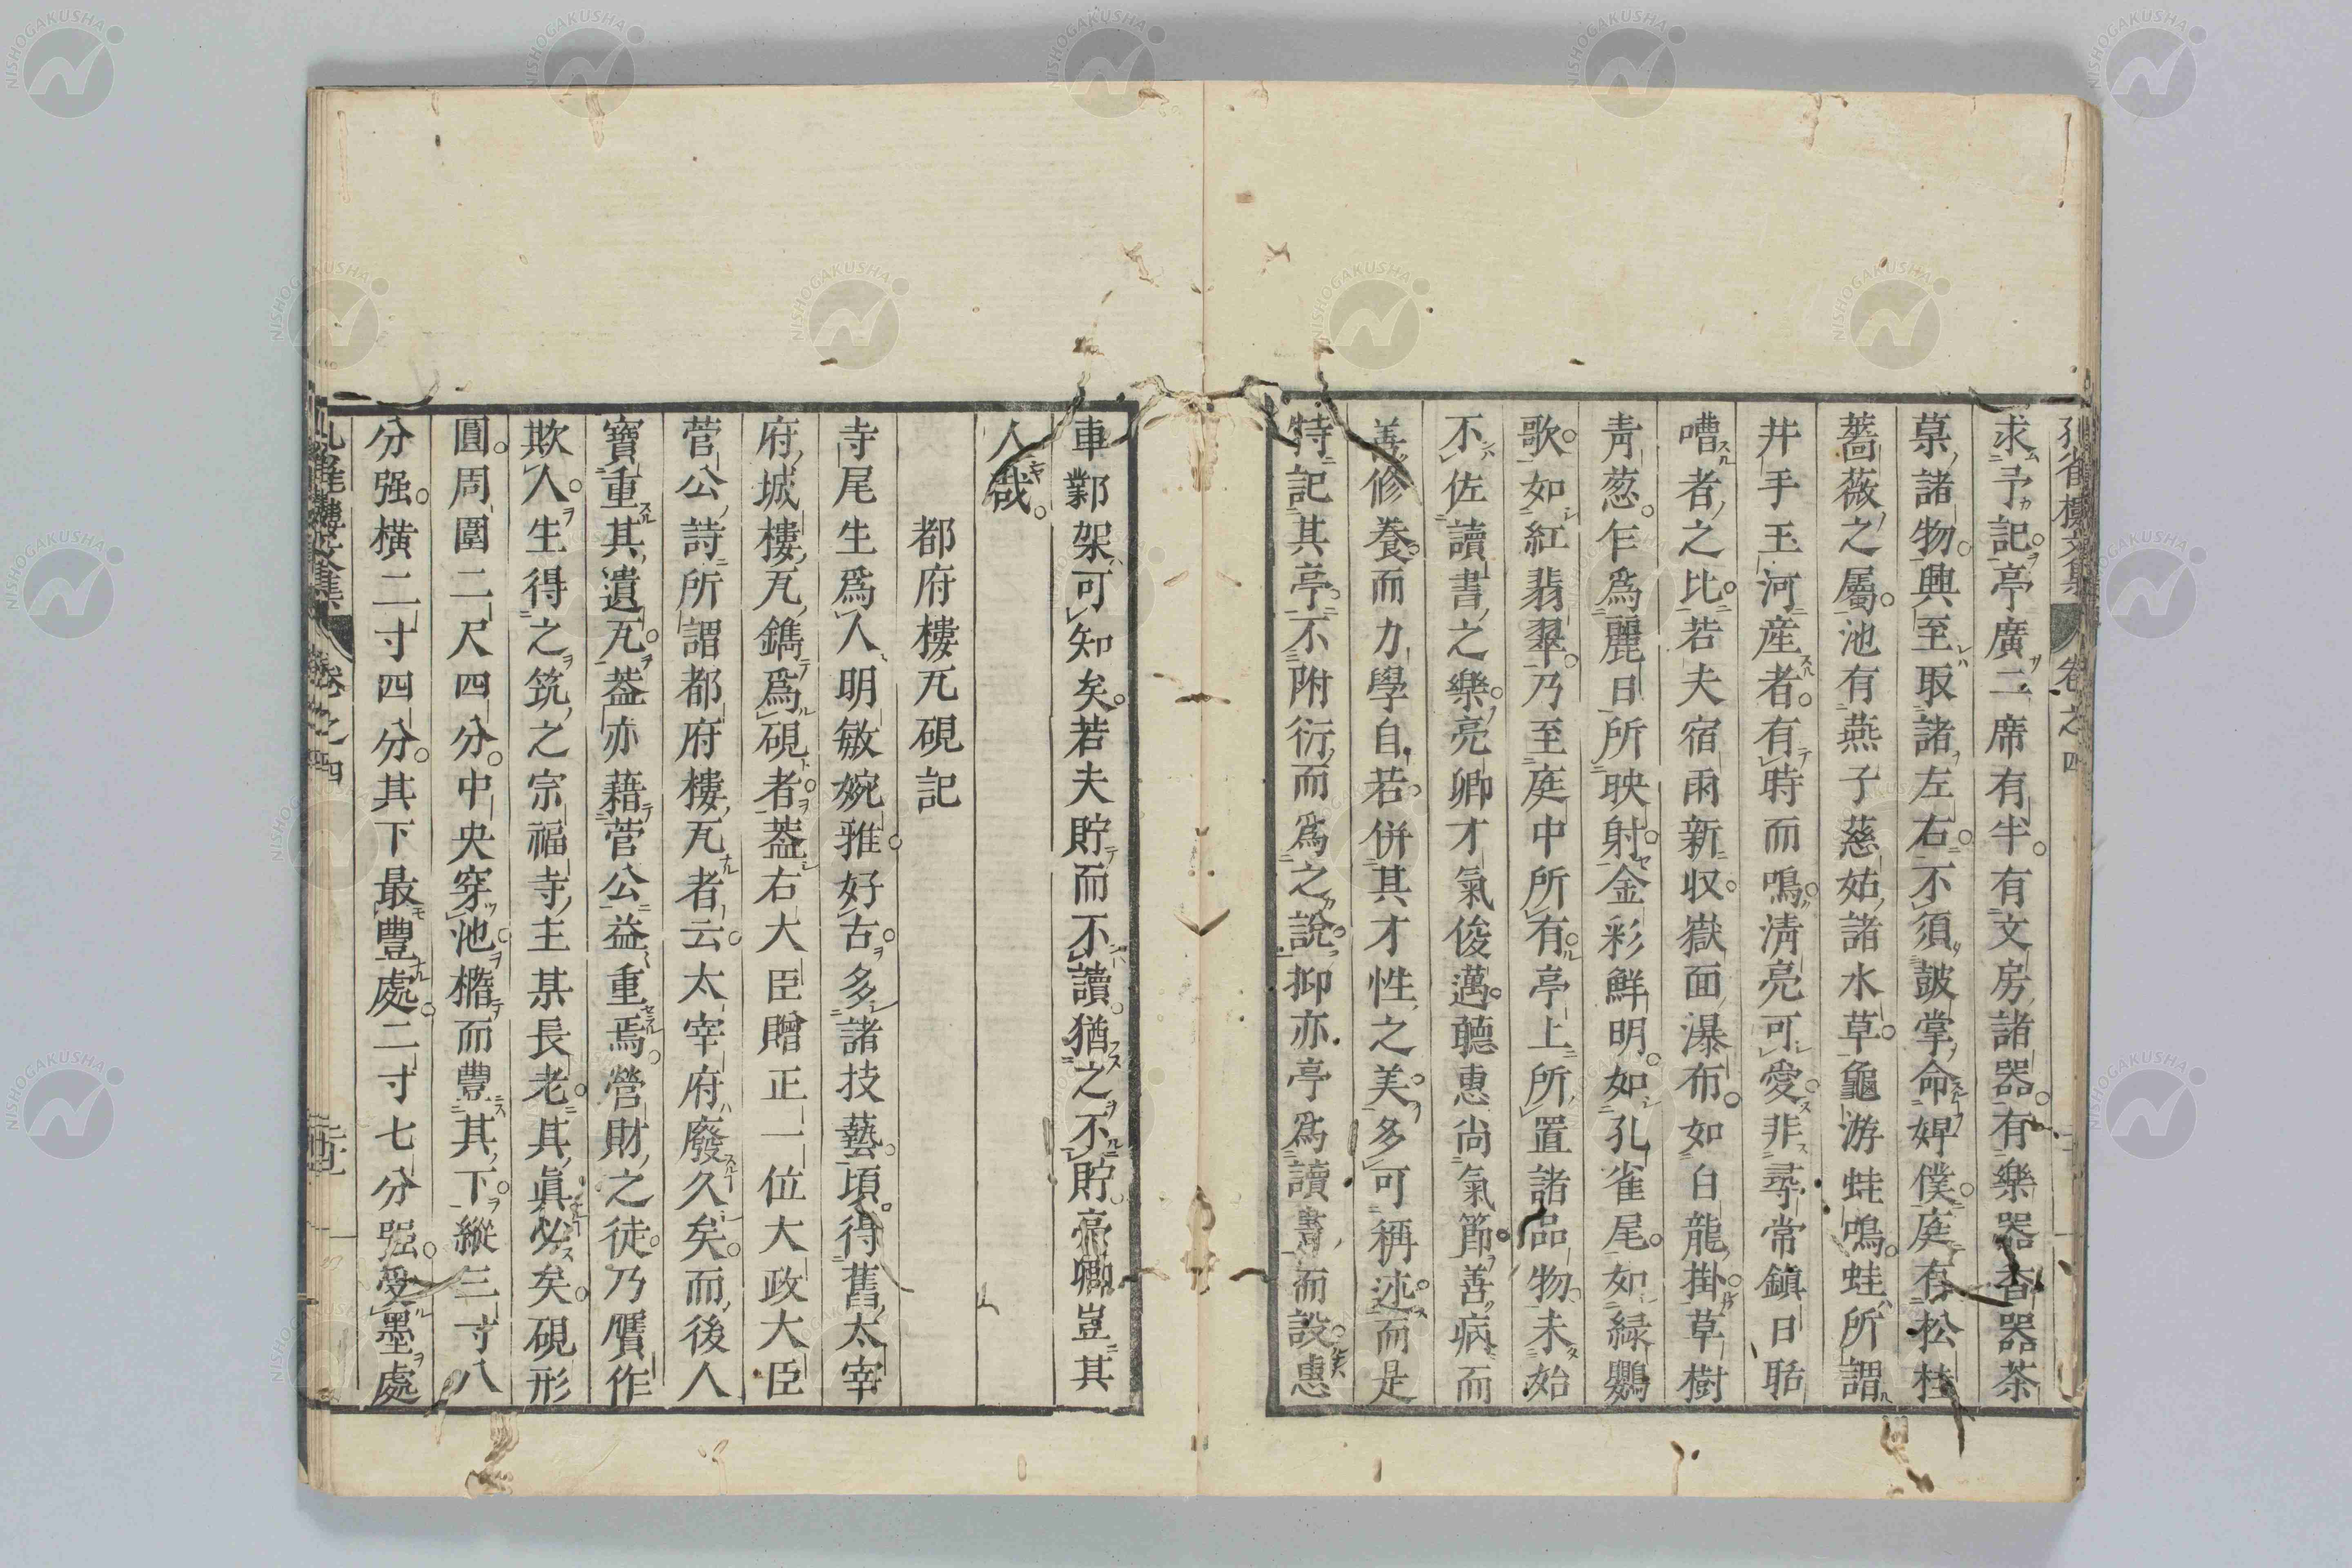 孔雀樓文集 卷之四
求予記。亭廣二席有半。有文房諸器。有樂器香器茶
菓諸物。興至取諸左右。不須皷掌命婢僕。庭有松桂
薔薇之屬。池有燕子慈姑諸水草。龜游蛙鳴。蛙所謂
井手玉河產者。有時而鳴。清亮可愛。非尋常鎮日聒
嘈者之比。若夫宿雨新収。嶽面瀑布。如白龍掛。草樹
青葱。乍爲麗日所映射。金彩鮮明。如孔雀尾。如緑鸚
歌。如紅翡翠。乃至庭中所有。亭上所置諸品物。未始
不佐讀書之樂。亮卿才氣俊邁。聽惠尚氣節。善病而
善修養。而力學自若。併其才性之美。多可稱述。而是
特記其亭。不附衍而爲之說。抑亦亭爲讀書而設。惠
車鄴架可知矣。若夫貯而不讀。猶之不貯。亮卿豈其
人哉。
都府樓瓦硯記
寺尾生爲人明敏婉雅。好古。多諸技藝。頃得舊太宰
府城樓瓦鐫爲硯者。葢右大臣贈正一位大政大臣
菅公詩所謂都府樓瓦者云。太宰府廢久矣。而後人
寶重其遺瓦。葢亦藉菅公益重焉。營財之徒。乃贋作
欺人。生得之筑之宗福寺主某長老。其眞必矣。硯形
圓。周圍二尺四分。中央穿池。橢而豐其下。縱三寸八
分强。橫二寸四分。其下最豐處。二寸七分强。受墨處
孔雀樓文集 卷之四